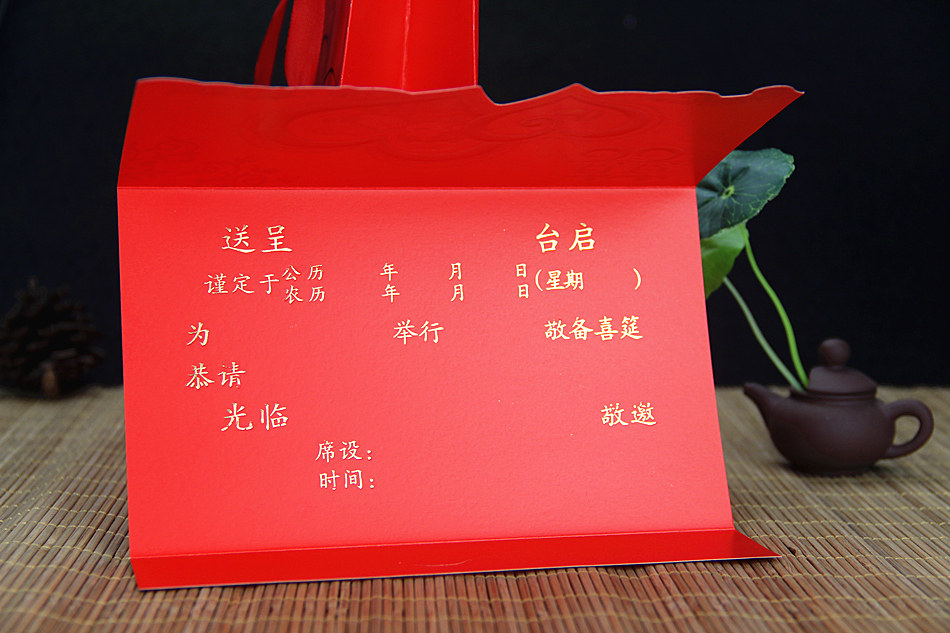 送呈 台启
谨定于 公历 年 月 日 (星期 )
农历 年 月 日
为 举行 敬备喜筵
恭请
光临 敬邀
席设：
时间：